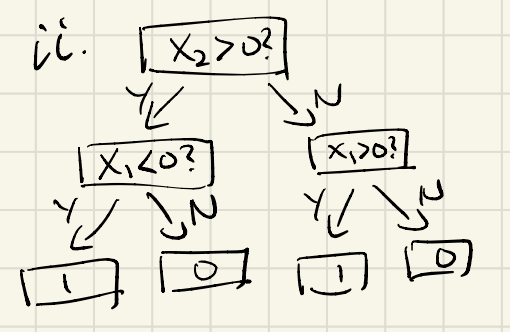 ii. X₂>0?
Y N
X₁<0? X₁>0?
Y N Y N
1 0 1 0